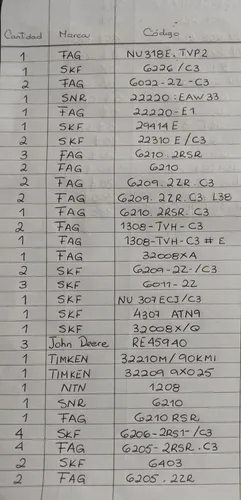 Cantidad Marca Código.
1 FAG NU318E.TVP2
1 SKF 6226/C3
2 FAG 6022-2Z-C3
1 SNR 22220.EAW33
1 FAG 22220-E1
1 SKF 29414E
2 SKF 22310E/C3
3 FAG 6210.2RSR
2 FAG 6210
2 FAG 6209.2ZR.C3
2 FAG 6209.2ZR.C3.L38
1 FAG 6210.2RSR.C3
2 FAG 1308-TVH-C3
1 FAG 1308-TVH-C3 # E
1 FAG 32008XA
2 SKF 6209-2Z-/C3
3 SKF 6011-2Z
1 SKF NU 307 ECJ/C3
1 SKF 4307 ATN9
1 SKF 32008X/Q
3 John Deere RE45940
1 TIMKEN 32210M/90KM1
1 TIMKEN 32209 9X025
1 NTN 1208
1 SNR 6210
1 FAG 6210RSR
4 SKF 6206-2RS1-/C3
4 FAG 6205-2RSR.C3
2 SKF 6403
2 FAG 6205.2ZR